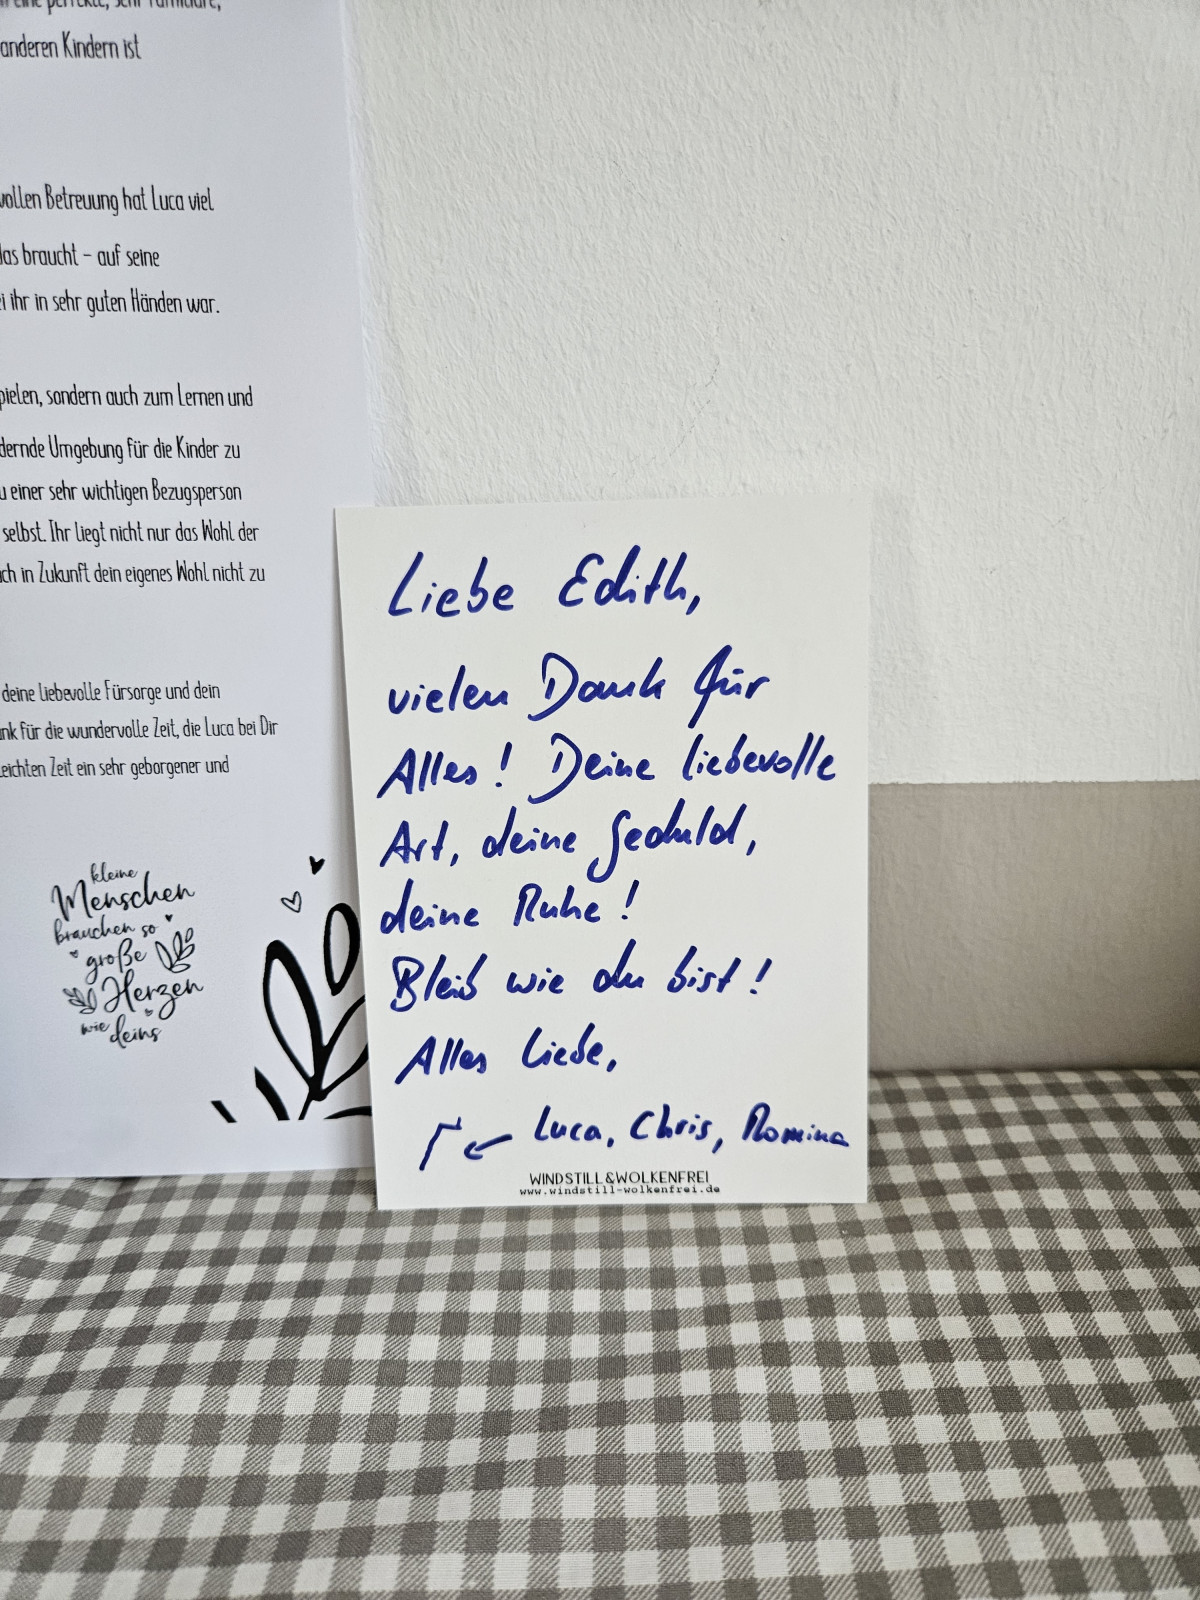 perfekte, sehr familiäre,
anderen Kindern ist
vollen Betreuung hat Luca viel
das braucht – auf seine
ihr in sehr guten Händen war.
pielen, sondern auch zum Lernen und
dernde Umgebung für die Kinder zu
u einer sehr wichtigen Bezugsperson
selbst. Ihr liegt nicht nur das Wohl der
ch in Zukunft dein eigenes Wohl nicht zu
deine liebevolle Fürsorge und dein
nk für die wundervolle Zeit, die Luca bei Dir
leichten Zeit ein sehr geborgener und
kleine
Menschen
brauchen so
große
Herzen
wie deins
Liebe Edith,
vielen Dank für
Alles! Deine liebevolle
Art, deine Geduld,
deine Ruhe!
Bleib wie du bist!
Alles Liebe,
Luca, Chris, Romina
WINDSTILL&WOLKENFREI
www.windstill-wolkenfrei.de